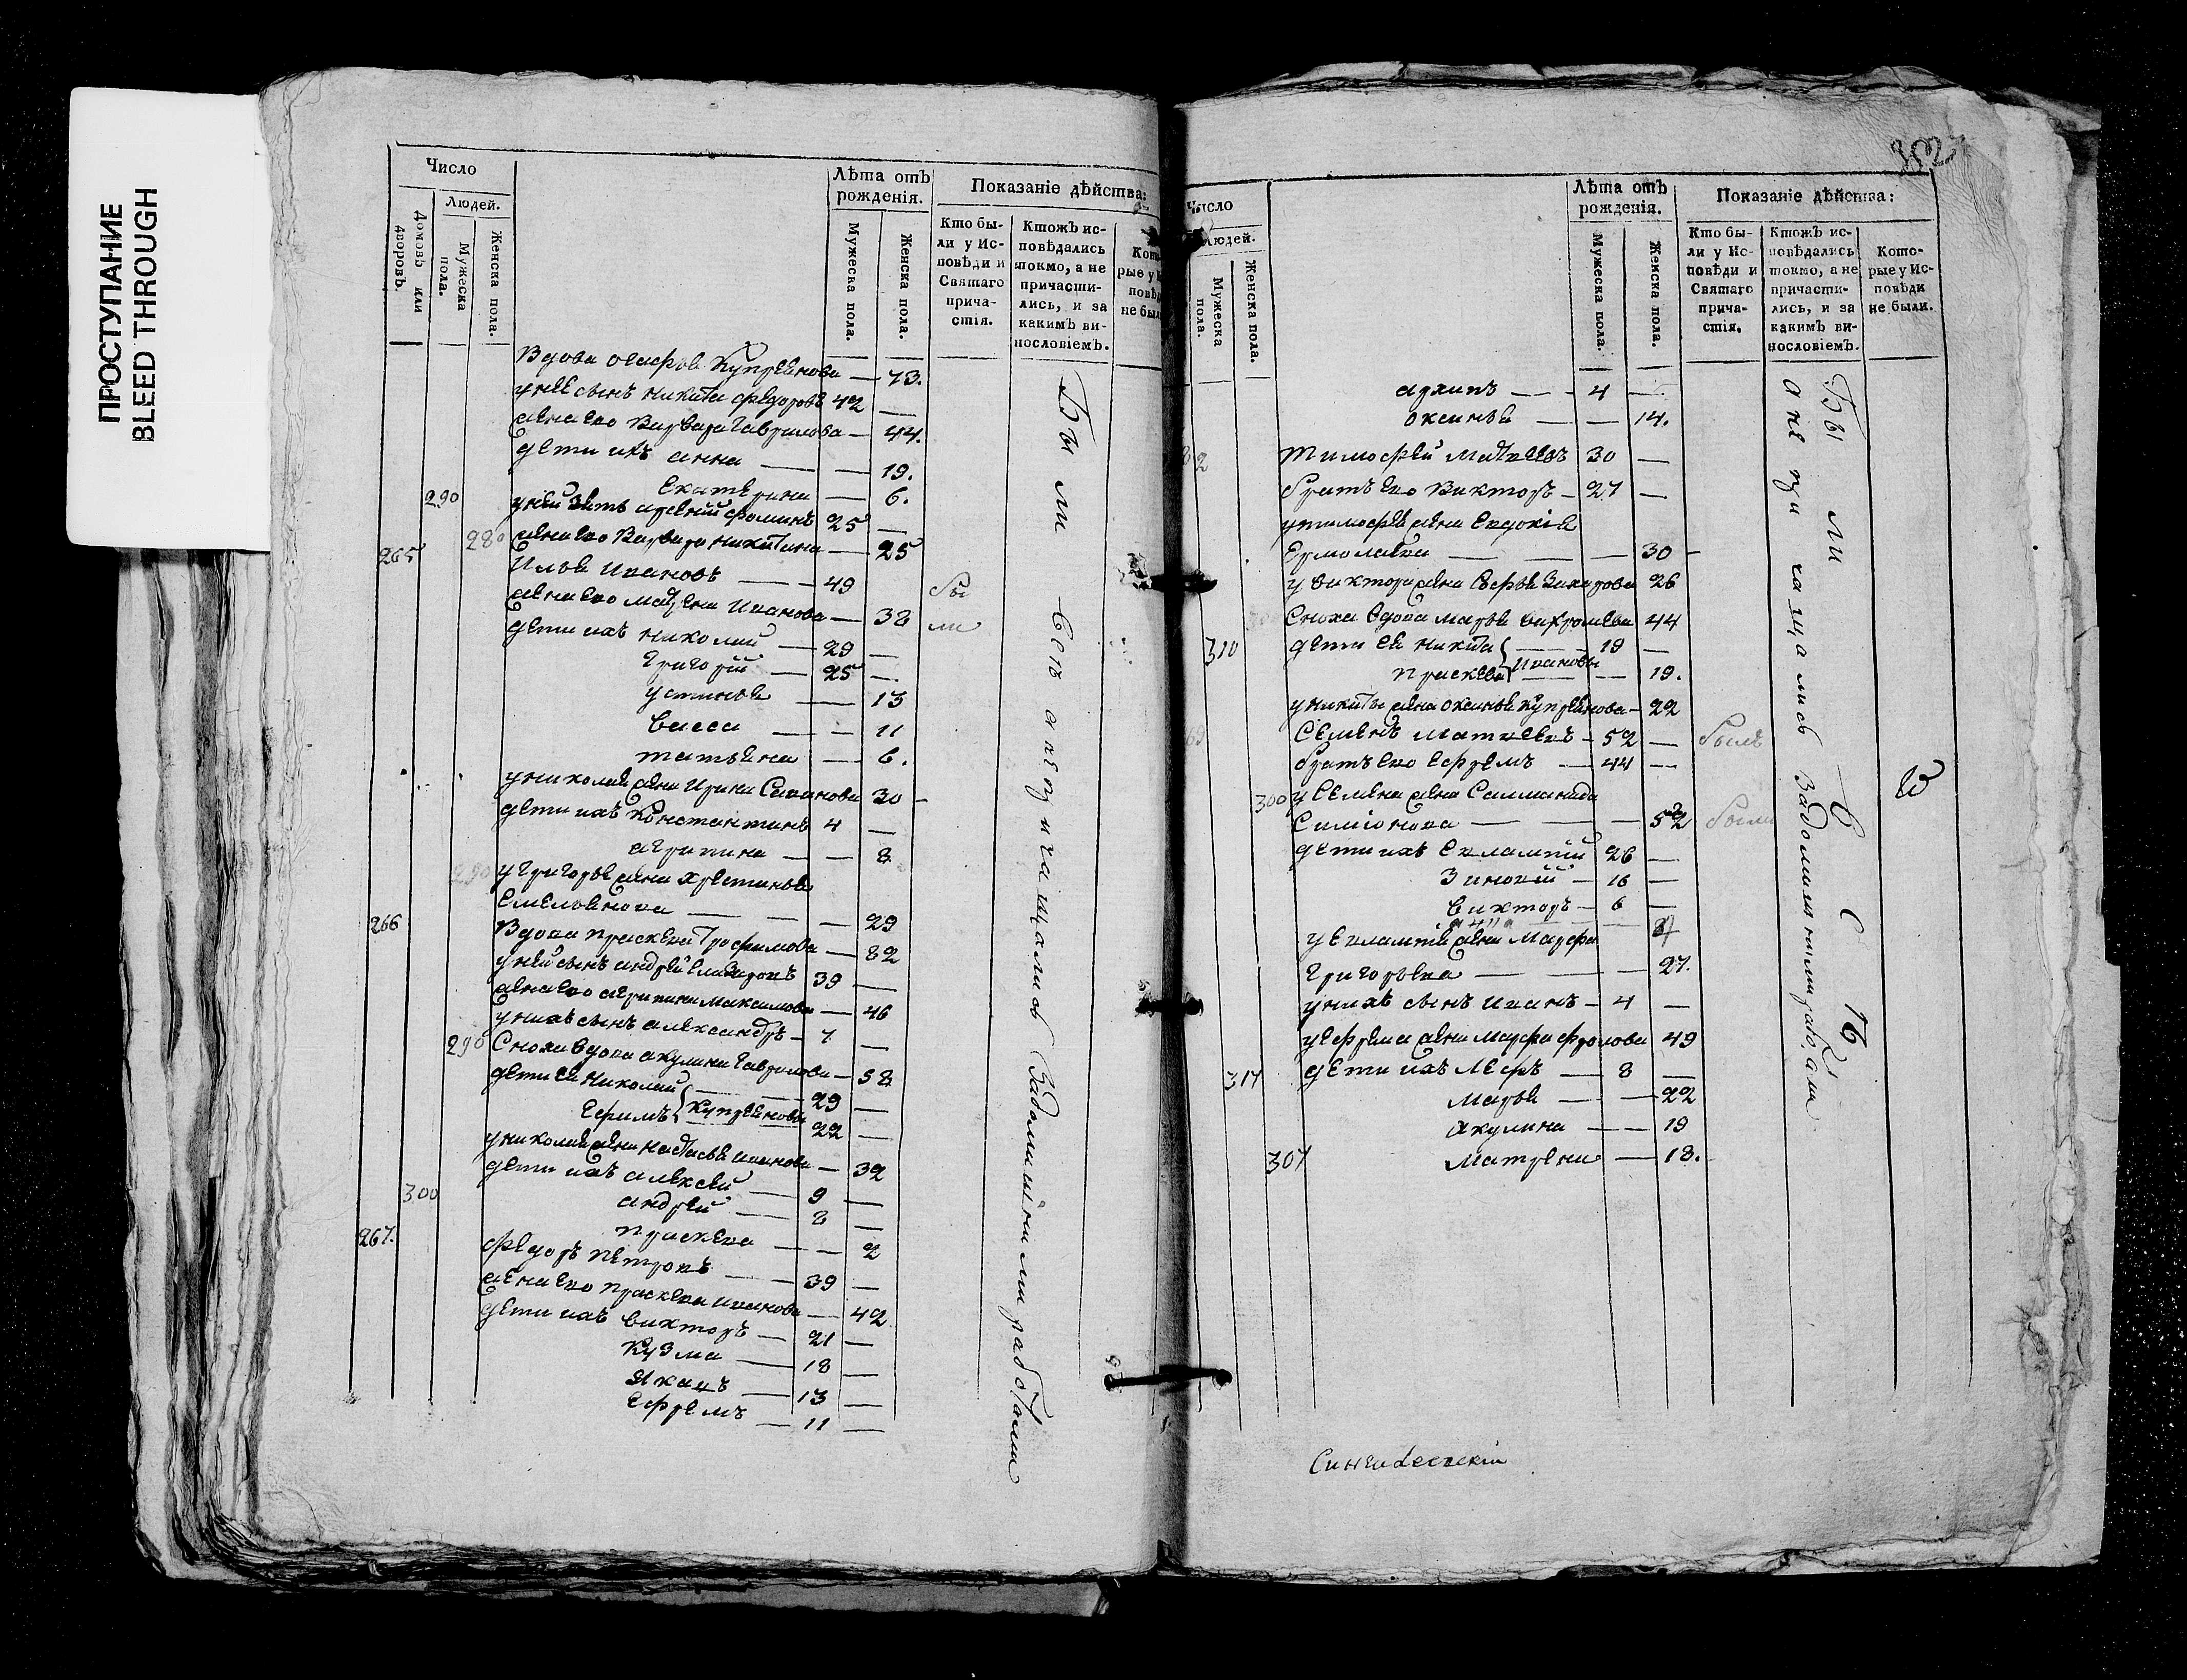 ПРОСТУПАНИЕ
BLEED THROUGH
Число
Людей.
Домовъ или дворовъ.
Мужеска пола.
Женска пола.
Лѣта отъ рожденія.
Мужеска пола.
Женска пола.
Показаніе дѣйства:
Кто бы-
ли у Ис-
повѣди и
Святаго
прича-
стія.
Ктожъ ис-
повѣдались
токмо, а не
причасти-
лись, и за
какимъ ви-
нословіемъ.
Кото-
рые у
повѣд
не был
Вдова Купреянова — 73.
у нее сынъ никита федоровъ 42 —
жена ево Варвара Гаврилова — 44.
дети ихъ анна — — 19.
екатерина — 6.
290 у ней зять фоминъ 25 —
280 жена ево Варвара никитина — 25
265 Илья Ивановъ — 49
жена ево Ивановa — 38
дети ихъ николай — 29 —
григорій — 25 —.
устинья — 13
васса — — 11
татьяна — 6.
у николая жена Ирина 30 —
дети ихъ Константинъ 4 —
агрипина — — 8
290 у григорья жена хрестинья
Емельянова — — — 29
266 Вдова праскева Трофимова — 82
у ней сынъ андрей 39 —
жена ево агрипина максимова — 46
у нихъ сынъ александръ — 7 —
290 Сноха вдова акулина Гаврилова — 58
дети ея николай — 29 —
Ефимъ Купреяновы 22 —
у николая жена настасья иванова — 39
дети ихъ алексей — 9 —
300 андрей — 8 —
праскева — — 2
267. федоръ петровъ — — 39 —
жена ево праскева иванова — 42
дети ихъ викторъ — 21 —
Кузма — 18 —
— 13 —
Ефремъ — 11 —
были
Были а не причащались За домашними работами
302
Число
Людей.
Мужеска пола.
Женска пола.
Лѣта отъ рожденія.
Мужеска пола.
Женска пола.
Показаніе дѣйства:
Кто бы-
ли у Ис-
повѣди и
Святаго
прича-
стія.
Ктожъ ис-
повѣдались
токмо, а не
причасти-
лись, и за
какимъ ви-
нословіемъ.
Кото-
рые у Ис-
повѣди
не были.
архипъ — — 4 —
оксинья — — 14.
тимофей матвеевъ 30 —
братъ ево Викторъ — 27 —
у тимофея жена евдокія
Ермолаева — — — 30 —
у виктора жена софья Захарова 26
Сноха вдова марья 44
310 дети ея никита — — 19 —
праскева Ивановы — — 19.
у никиты жена оксинья купреянова — 22
Семенъ матвеевъ — 52 — былъ
братъ ево ефремъ — 44 —
300 у Семена жена
Симіонова — — — 52 были
дети ихъ Евлампій 26 —
Зиновій — 16 —
викторъ — 6 —
анна
у Евлампія жена Марфа
григорьева — — — 27.
у нихъ сынъ иванъ — 4 —
у ефрема жена марфа фролова 49
317 дети ихъ — 8 —
марья — — 22
акулина — — 19
307 матрена — 18.
Были а не причащались За домашними работами